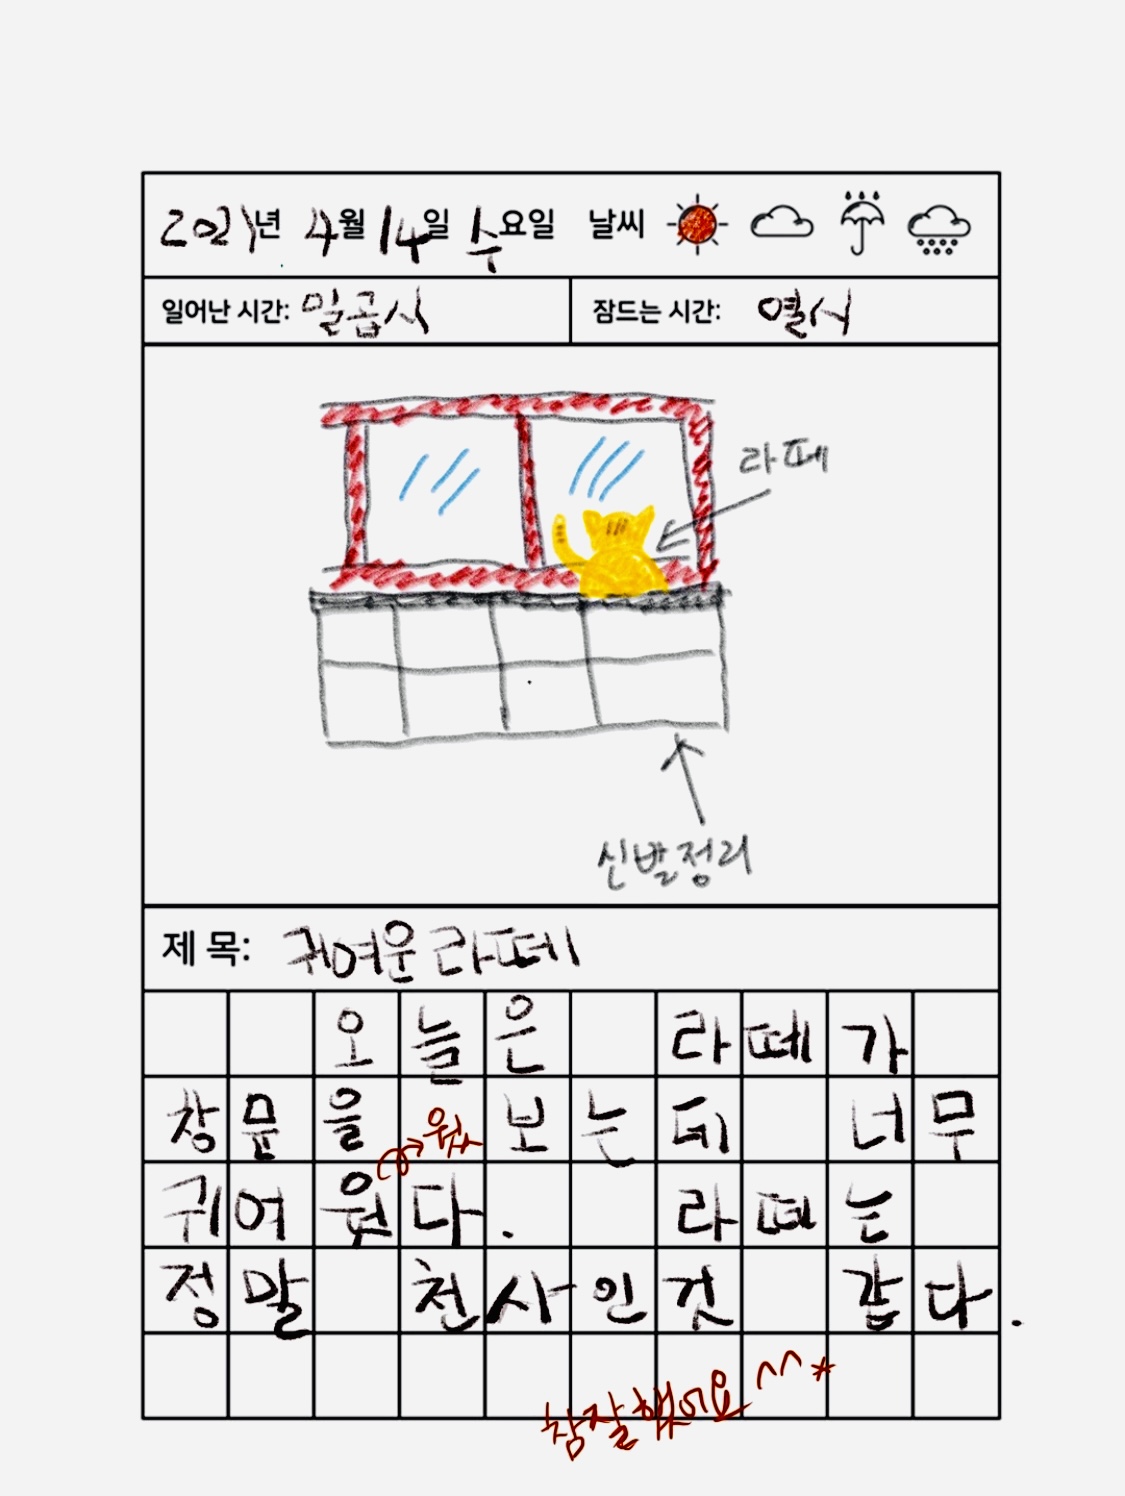 2021년 4월 14일 수요일 날씨
일어난 시간: 일곱시 잠드는 시간: 열시
라떼
신발정리
제 목: 귀여운 라떼
오늘은 라떼가
창문을 보는데 너무
웠
귀여웟다. 라떼는
정말 천사인것 같다.
참잘했어요 ^^*